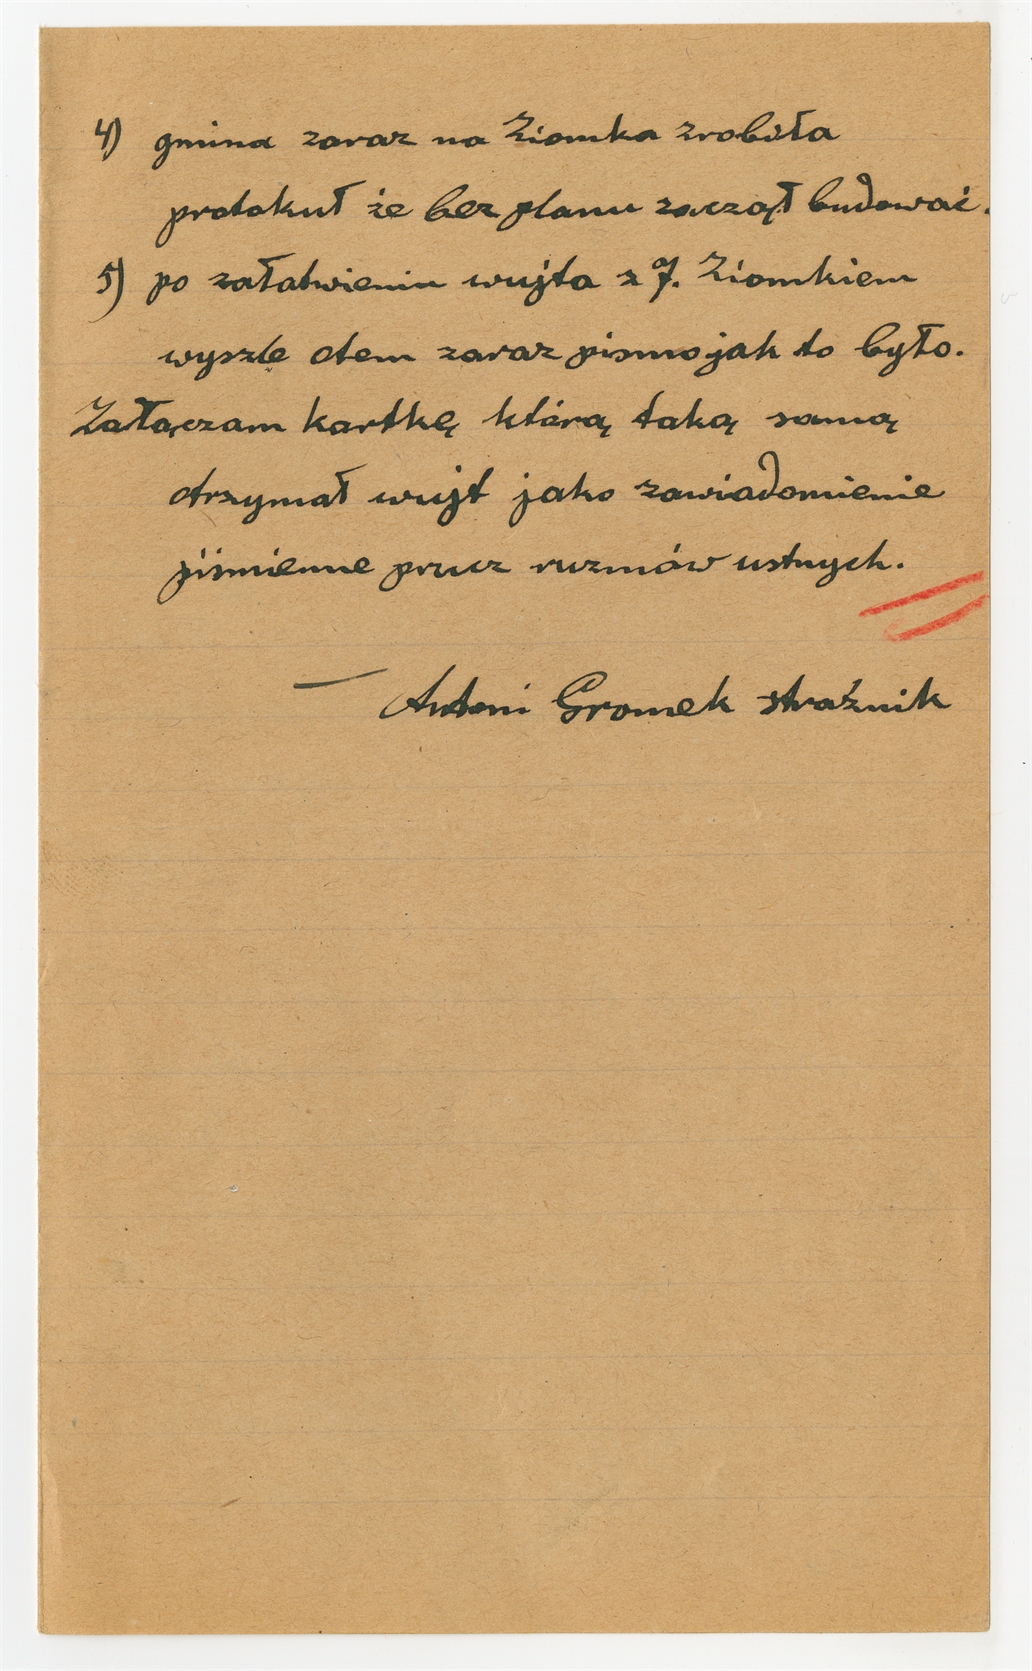 4) gmina zaraz na Ziomka zrobiła
protokuł że bez planu zaczął budować.
5) po załatwieniu wujta z J. Ziomkiem
wyszle otem zaraz pismo jak to było.
Załączam kartkę którą taką samą
otrzymał wujt jako zawiadomienie
piśmienne prucz ruzmów ustnych.
Antoni Gromek strażnik